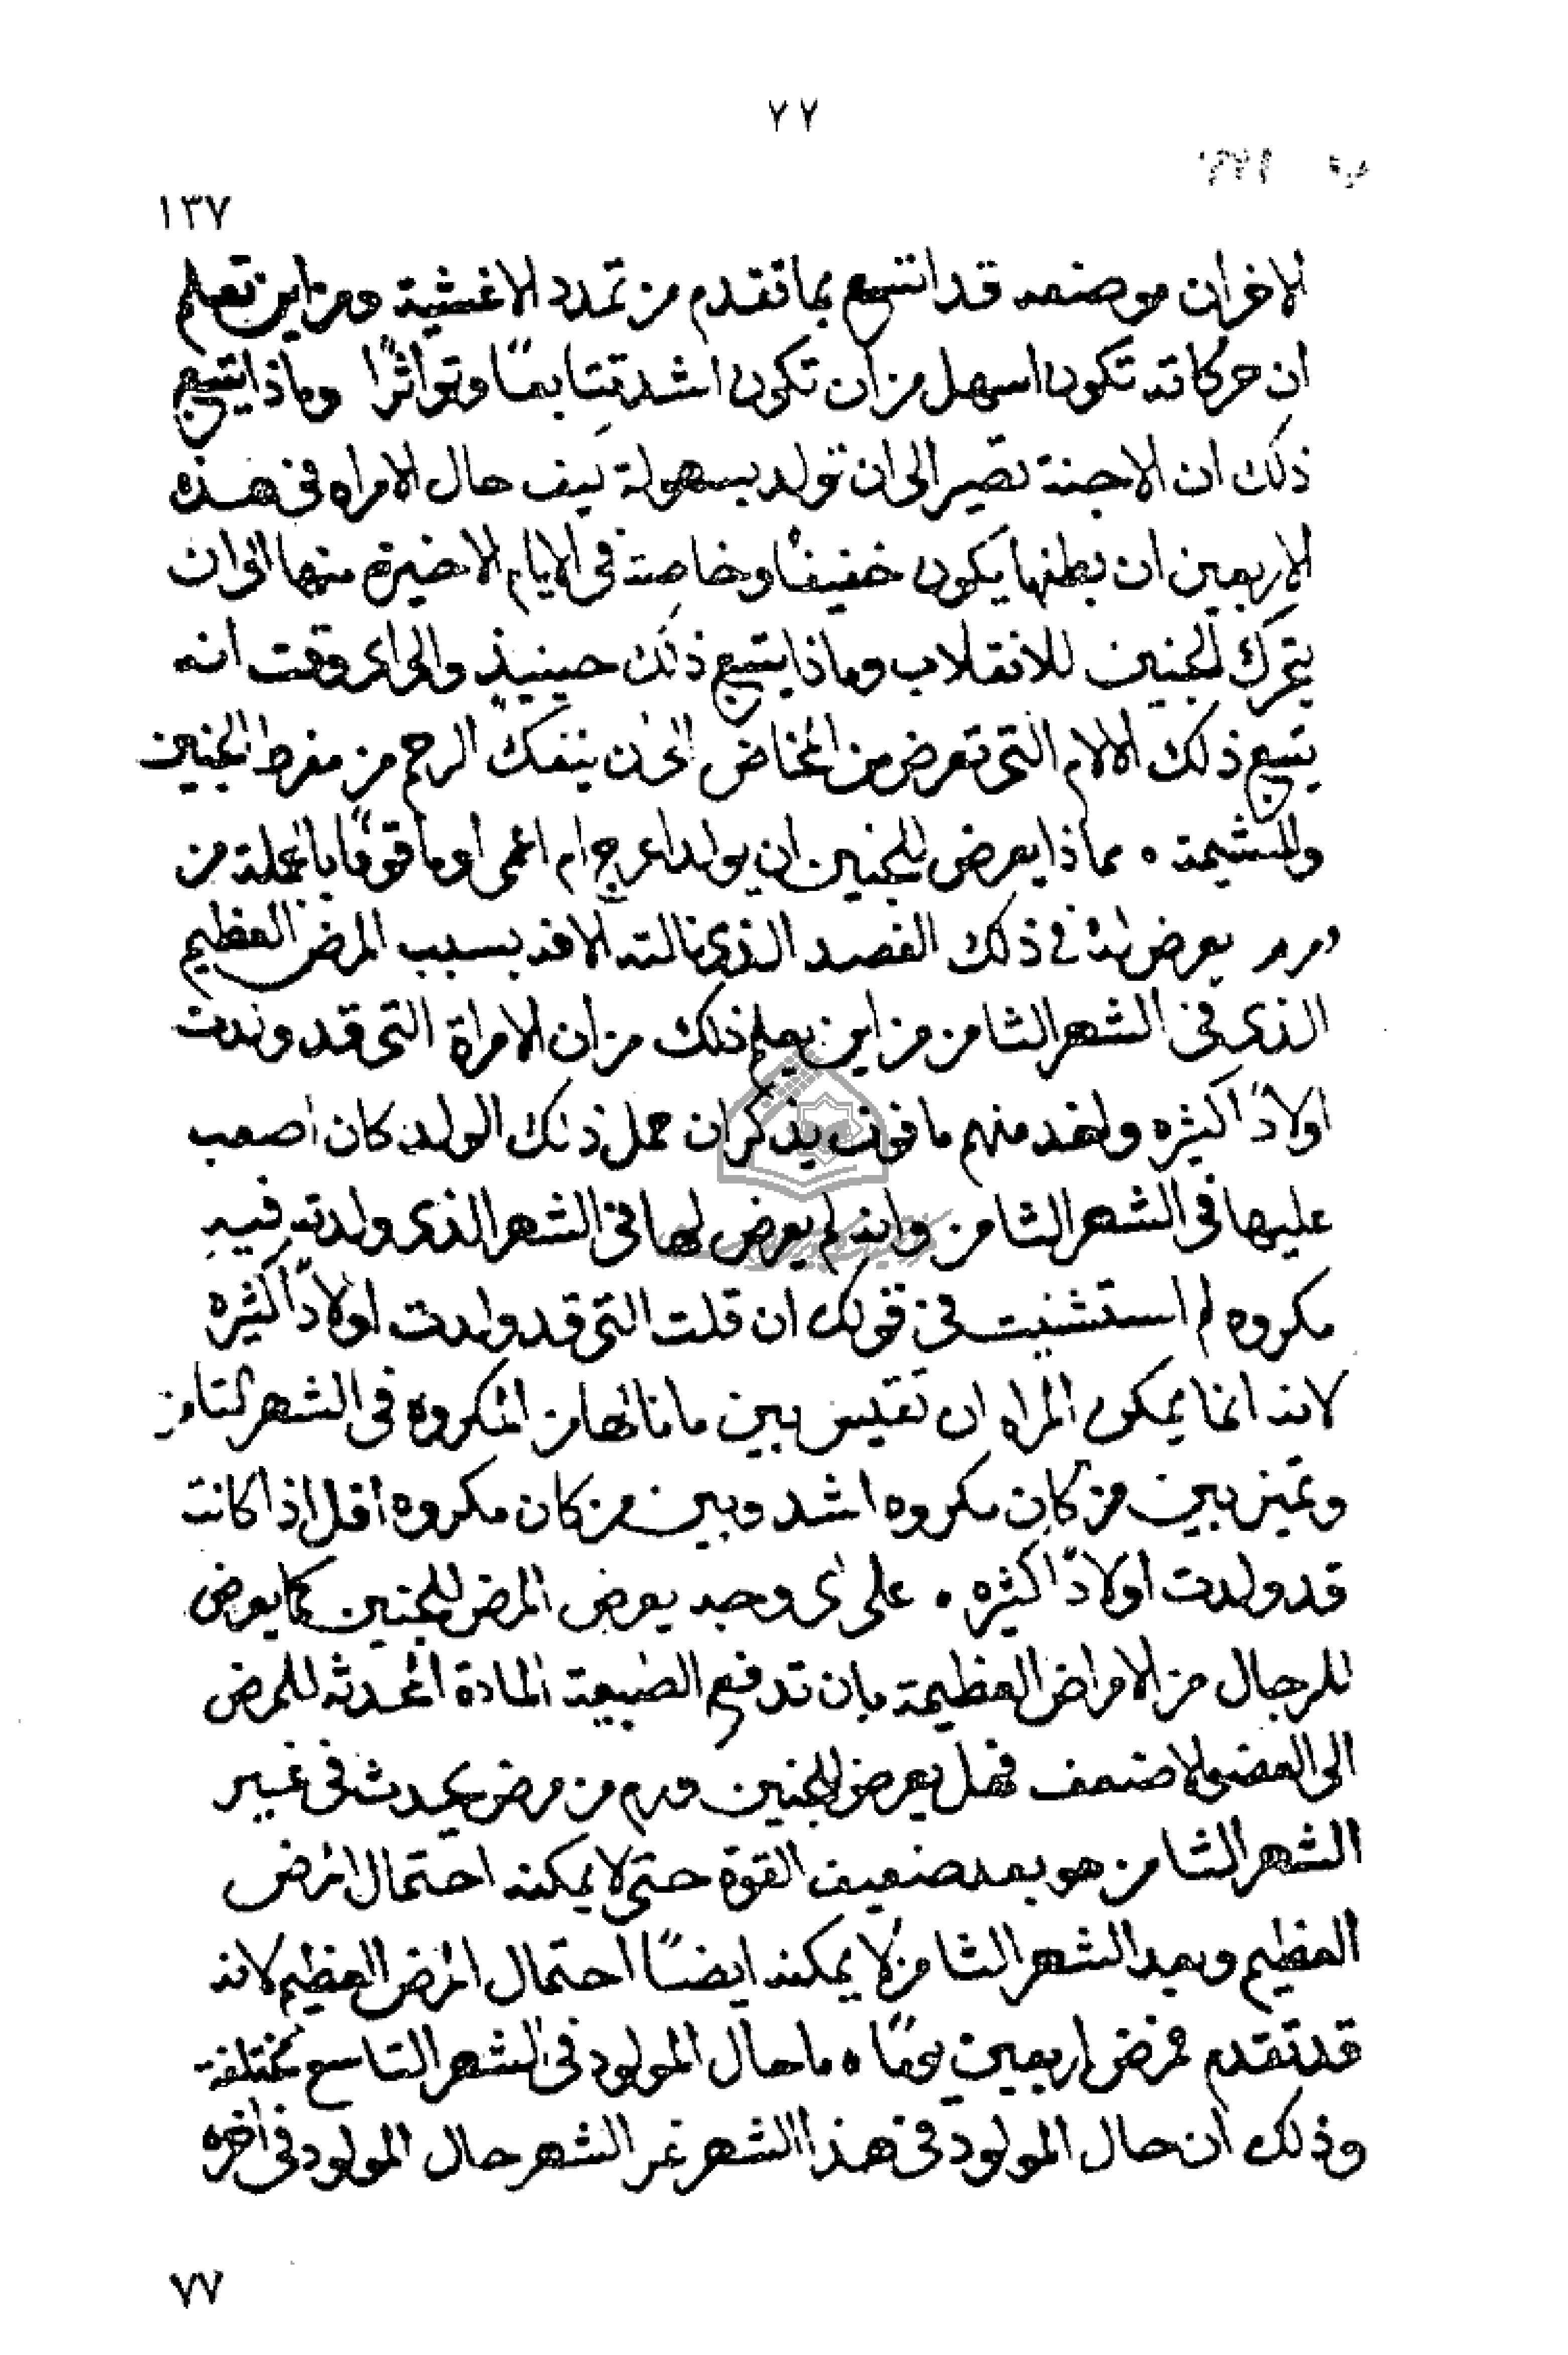 ٧٧
١٣٧
لاخران موضعه قد اتسع بما تقدم من تمدد الاغشية ومن اين تعلم
ان حركاته تكون اسهل من أن تكون اشد تتابعًا وتواترًا وماذا يتبع
ذلك ان الاجنة تصير الى ان تولد بسهولة كيف حال الامراه فى هذه
الاربعين ان بطنها يكون خفيفًا وخاصة فى الايام الاخيرة منها الى ان
يتحرك الجنين للانقلاب وماذا يتبع ذلك حينيذٍ والى اى وقت انه
يتبع ذلك الالام التى تعرض من المخاض الى ان ينفك الرحم من مفرط الجنين
والمشيمة ٠ مماذا يعرض للجنين ان يولد اعرج ام اعمى او ماقوفًا بالجملة من
ورم يعرض له فى ذلك الفصد الذى نالته الافه بسبب المرض العظيم
الذى فى الشهر الثامن من اين يعلم ذلك من ان الامراة التى قد ولدت
اولادًا كثيره واحد منهم ماقوف يذكر ان حمل ذلك الولد كان اصعب
عليها فى الشهر الثامن وانه لم يعرض لها فى الشهر الذى ولدته فيه
مكروه لم استثنيت فى قولك ان قلت التى قد ولدت اولادًا كثيره
لانه انما يمكن المراه ان تقيس بين ما نالها من المكروه فى الشهر الثامن
وتميز بين من كان مكروه اشد وبين من كان مكروه اقل اذا كانت
قد ولدت اولادًا كثيره ٠ على اى وجه يعرض المرض للجنين كما يعرض
للرجال من الامراض العظيمة بان تدفع الطبيعة المادة المحدثه للمرض
الى العضو الاضعف فهل يعرض للجنين ورم من مرض يحدث فى غير
الشهر الثامن هو بعد ضعيف القوة حتى لا يمكنه احتمال المرض
العظيم وبعد الشهر الثامن لا يمكنه ايضًا احتمال المرض العظيم لانه
قد تقدم فمرض اربعين يومًا ٠ ما حال المولود فى الشهر التاسع مختلفة
وذلك ان حال المولود فى هذا الشهر غير الشهر حال المولود فى اخره
٧٧